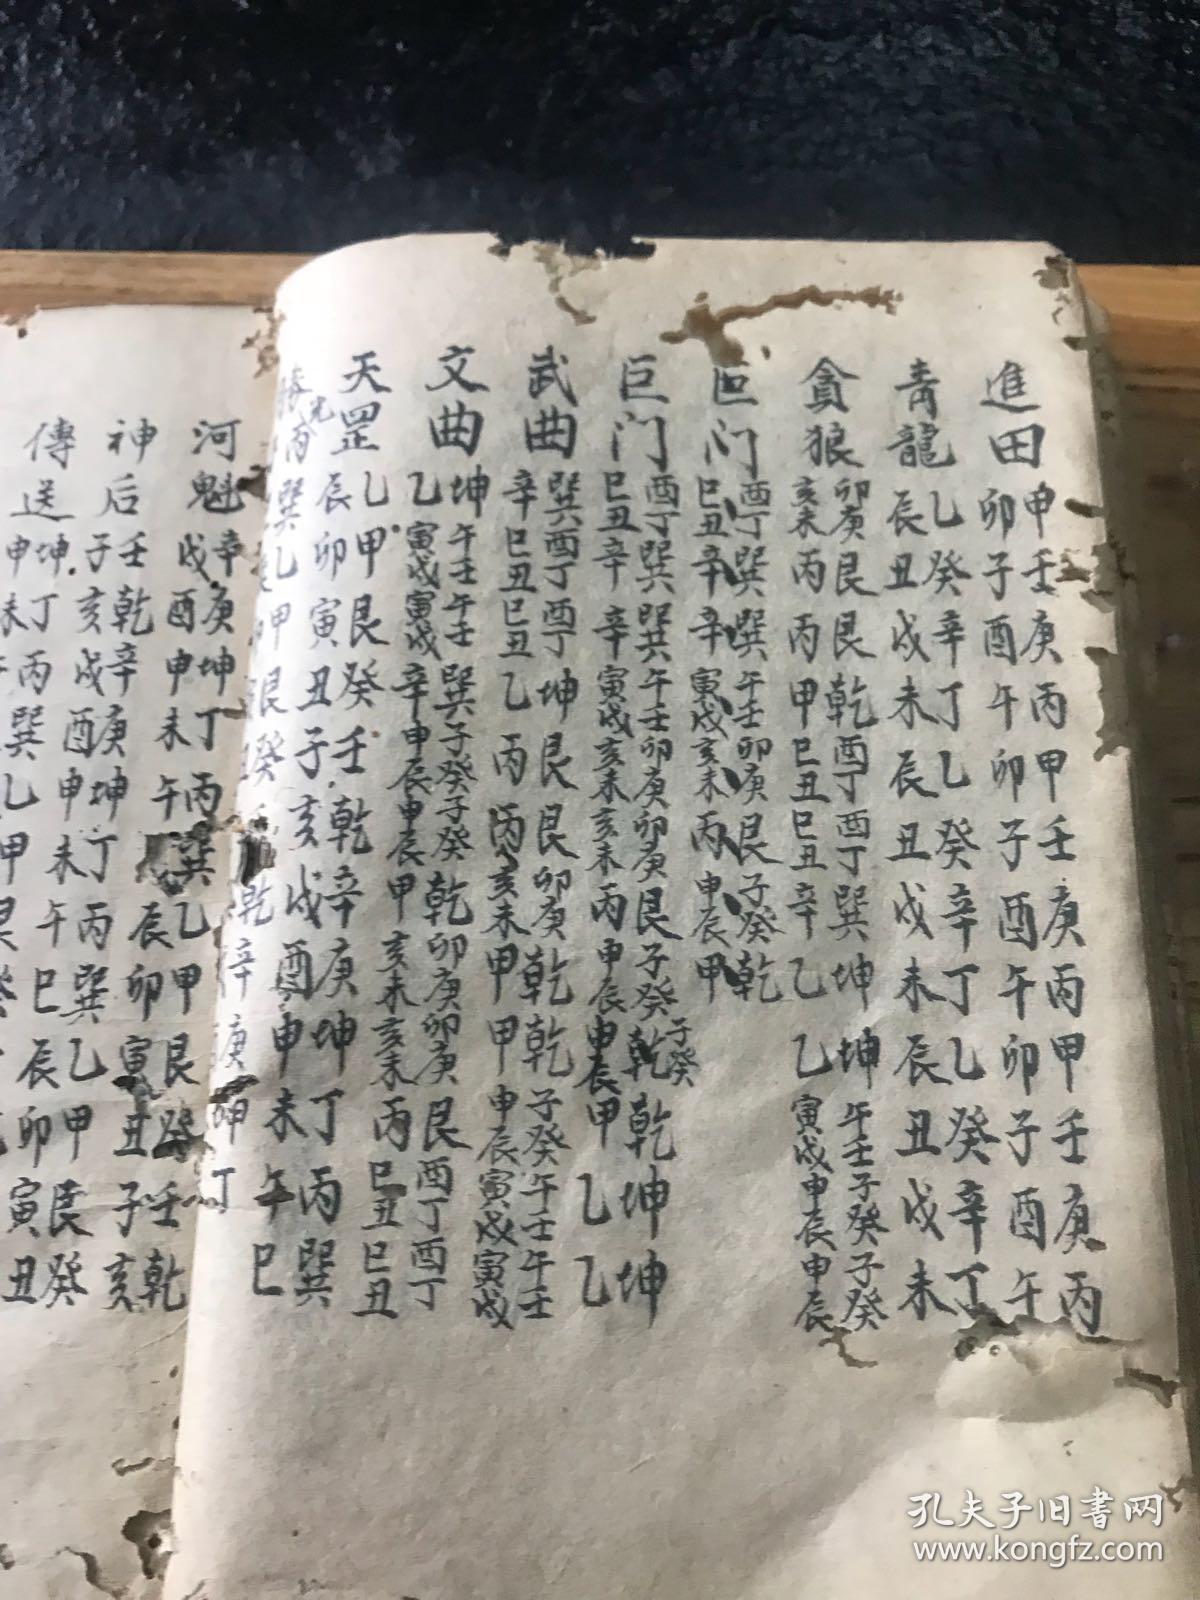 進田 申壬庚丙甲壬庚丙甲壬庚丙
卯子酉午卯子酉午卯子酉午
青龍 乙癸辛丁乙癸辛丁乙癸辛丁
辰丑戌未辰丑戌未辰丑戌未
貪狼 卯庚艮艮乾酉丁酉丁巽坤坤午壬子癸子癸
亥未丙丙甲巳丑巳丑辛乙乙寅戌申辰申辰
巨门 酉丁巽巽午壬卯庚艮子癸乾
巳丑辛辛寅戌亥未丙申辰甲
巨门 酉丁巽巽午壬卯庚卯庚艮子癸子癸乾乾坤坤
巳丑辛辛寅戌亥未亥未丙申辰申辰甲乙乙
武曲 巽酉丁酉丁坤艮艮卯庚乾乾子癸午壬午壬
辛巳丑巳丑乙丙丙亥未甲甲申辰寅戌寅戌
文曲 坤午壬午壬巽子癸子癸乾卯庚卯庚艮酉丁酉丁
乙寅戌寅戌辛申辰申辰甲亥未亥未丙巳丑巳丑
天罡 乙甲艮癸壬乾辛庚坤丁丙巽
辰卯寅丑子亥戌酉申未午巳
勝光 丙巽乙甲艮癸 乾辛庚坤丁
河魁 辛庚坤丁丙巽乙甲艮癸壬乾
戌酉申未午 辰卯寅丑子亥
神后 壬乾辛庚坤丁丙巽乙甲艮癸
子亥戌酉申未午巳辰卯寅丑
傳送 坤丁丙巽乙甲艮癸
申未